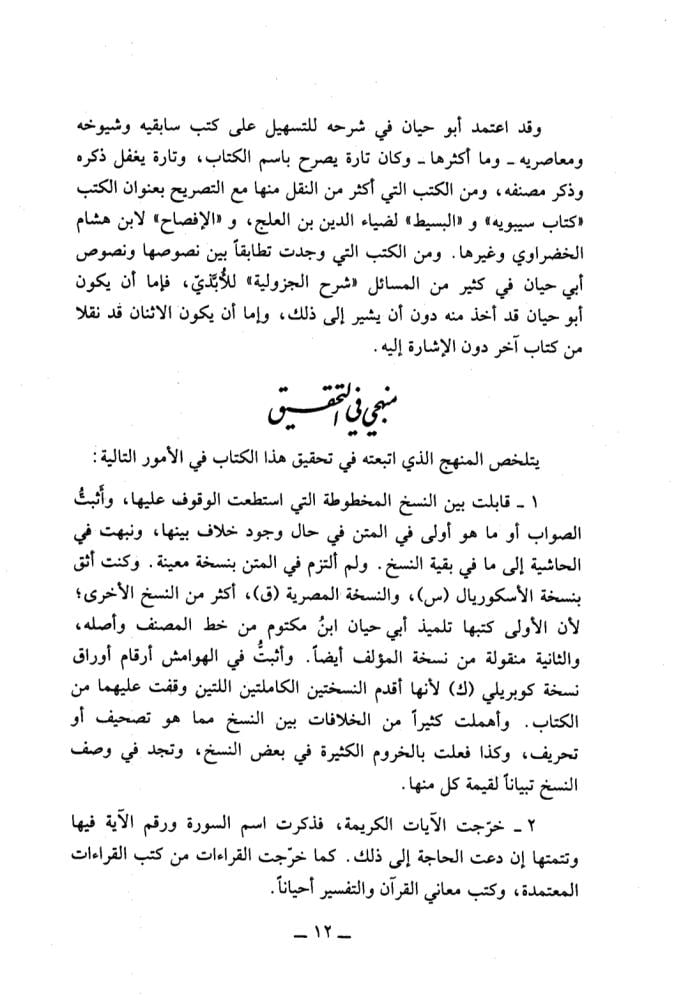 وقد اعتمد أبو حيان في شرحه للتسهيل على كتب سابقيه وشيوخه
ومعاصريه ـ وما أكثرها ـ وكان تارة يصرح باسم الكتاب، وتارة يغفل ذكره
وذكر مصنفه، ومن الكتب التي أكثر من النقل منها مع التصريح بعنوان الكتب
«كتاب سيبويه» و «البسيط» لضياء الدين بن العلج، و «الإفصاح» لابن هشام
الخضراوي وغيرها. ومن الكتب التي وجدت تطابقاً بين نصوصها ونصوص
أبي حيان في كثير من المسائل «شرح الجزولية» للأُبَّذيّ، فإما أن يكون
أبو حيان قد أخذ منه دون أن يشير إلى ذلك، وإما أن يكون الاثنان قد نقلا
من كتاب آخر دون الإشارة إليه.
منهجي في التحقيق
يتلخص المنهج الذي اتبعته في تحقيق هذا الكتاب في الأمور التالية:
١ ـ قابلت بين النسخ المخطوطة التي استطعت الوقوف عليها، وأَثبتُّ
الصواب أو ما هو أولى في المتن في حال وجود خلاف بينها، ونبهت في
الحاشية إلى ما في بقية النسخ. ولم ألتزم في المتن بنسخة معينة. وكنت أثق
بنسخة الأسكوريال (س)، والنسخة المصرية (ق)، أكثر من النسخ الأخرى؛
لأن الأولى كتبها تلميذ أبي حيان ابنُ مكتوم من خط المصنف وأصله،
والثانية منقولة من نسخة المؤلف أيضاً. وأثبتُّ في الهوامش أرقام أوراق
نسخة كوبريلي (ك) لأنها أقدم النسختين الكاملتين اللتين وقفت عليهما من
الكتاب. وأهملت كثيراً من الخلافات بين النسخ مما هو تصحيف أو
تحريف، وكذا فعلت بالخروم الكثيرة في بعض النسخ، وتجد في وصف
النسخ تبياناً لقيمة كل منها.
٢ ـ خرّجت الآيات الكريمة، فذكرت اسم السورة ورقم الآية فيها
وتتمتها إن دعت الحاجة إلى ذلك. كما خرّجت القراءات من كتب القراءات
المعتمدة، وكتب معاني القرآن والتفسير أحياناً.
ـ ١٢ ـ